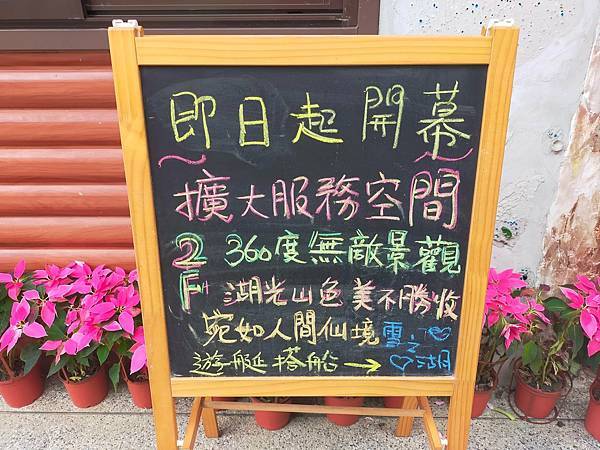 即日起開幕
擴大服務空間
2F 360度無敵景觀
湖光山色美不勝收
宛如人間仙境
遊艇搭船→
雪之♡
♡湖